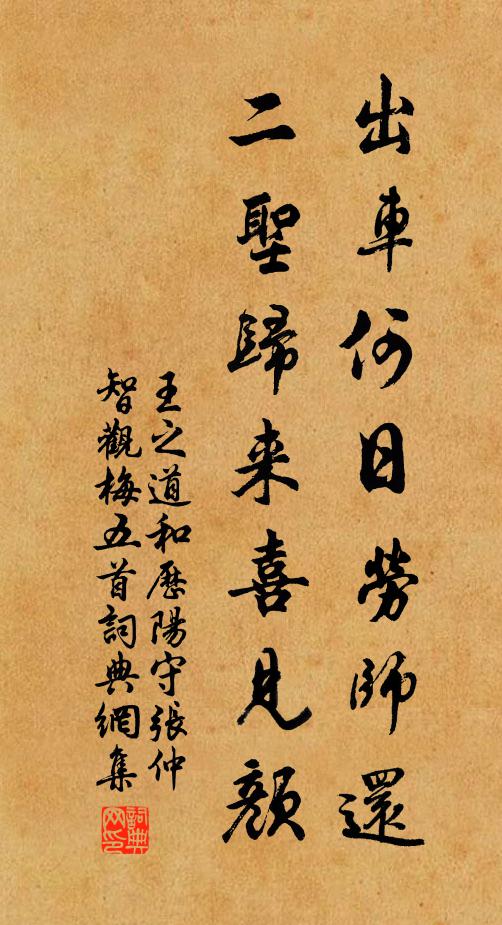 出車何日勞師還
二聖歸来喜見顏
王之道和歷陽守張仲
智觀梅五首詞典網集
詞典网印